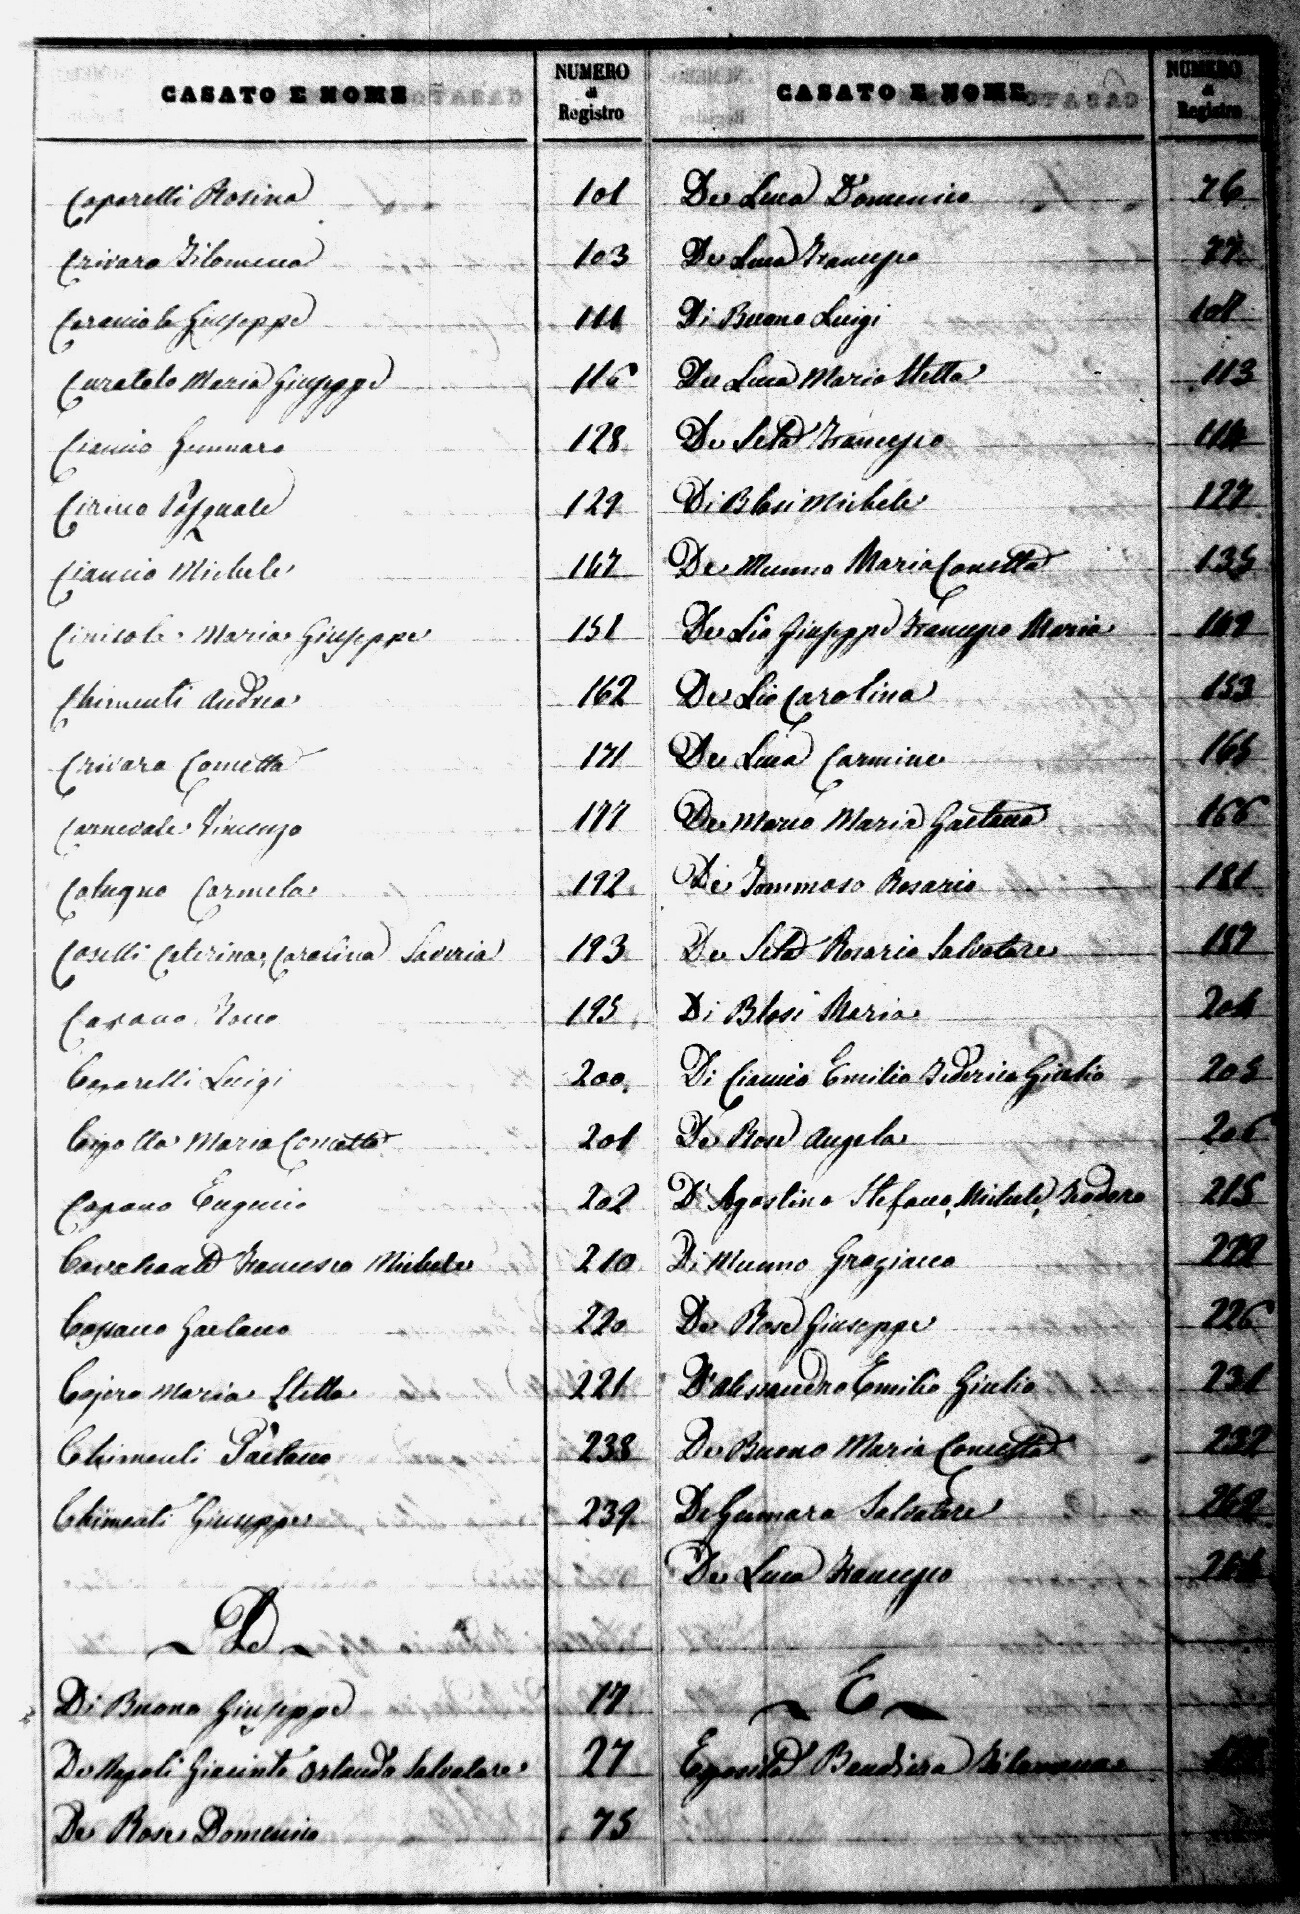 CASATO E NOME
NUMERO
di
Registro
Caparelli Rosina 101
Crivaro Filomena 103
Giuseppe 111
Curatolo Maria Giuseppe 116
Ciancio Gennaro 128
Cirino Pasquale 129
Ciancio Michele 147
Maria Giuseppe 151
Chimenti Andrea 162
Crivaro Concetta 171
Carnevale Vincenzo 177
Calugno Carmela 192
Caselli Caterina, Carolina Saveria 193
Capano Rocco 195
Caparelli Luigi 200
Cipolla Maria Concetta 201
Capano Eugenio 202
Cavalcante Francesco Michele 210
Capano Gaetano 220
Maria Stella 221
Chimenti Gaetano 238
Chimenti Giuseppe 239
D
Di Buono Giuseppe 17
De Napoli Giacinto Orlando Salvatore 27
De Rose Domenico 75
CASATO E NOME
NUMERO
di
Registro
De Luca Domenico 76
De Luca Francesco 77
Di Buono Luigi
De Luca Maria Stella 113
De Seta Francesco
Di Blasi Michele 127
De Munno Maria Concetta 135
De Lio Giuseppe Francesco Maria
De Lio Carolina 153
De Luca Carmine 165
De Marco Maria Gaetana 166
De Tommaso Rosario 181
De Seta Rosario Salvatore 187
Di Blasi Maria 204
Di Ciancio Emilio Federico Giulio 205
De Rose Angela 206
D'Agostino Stefano, Michele, Teodoro 215
Di Munno Graziano
De Rose Giuseppe 226
D'Alessandro Emilio Giulio 231
De Buono Maria Concetta 232
De Gennaro Salvatore
De Luca Francesco
E
Esposito Bandiera Filomena